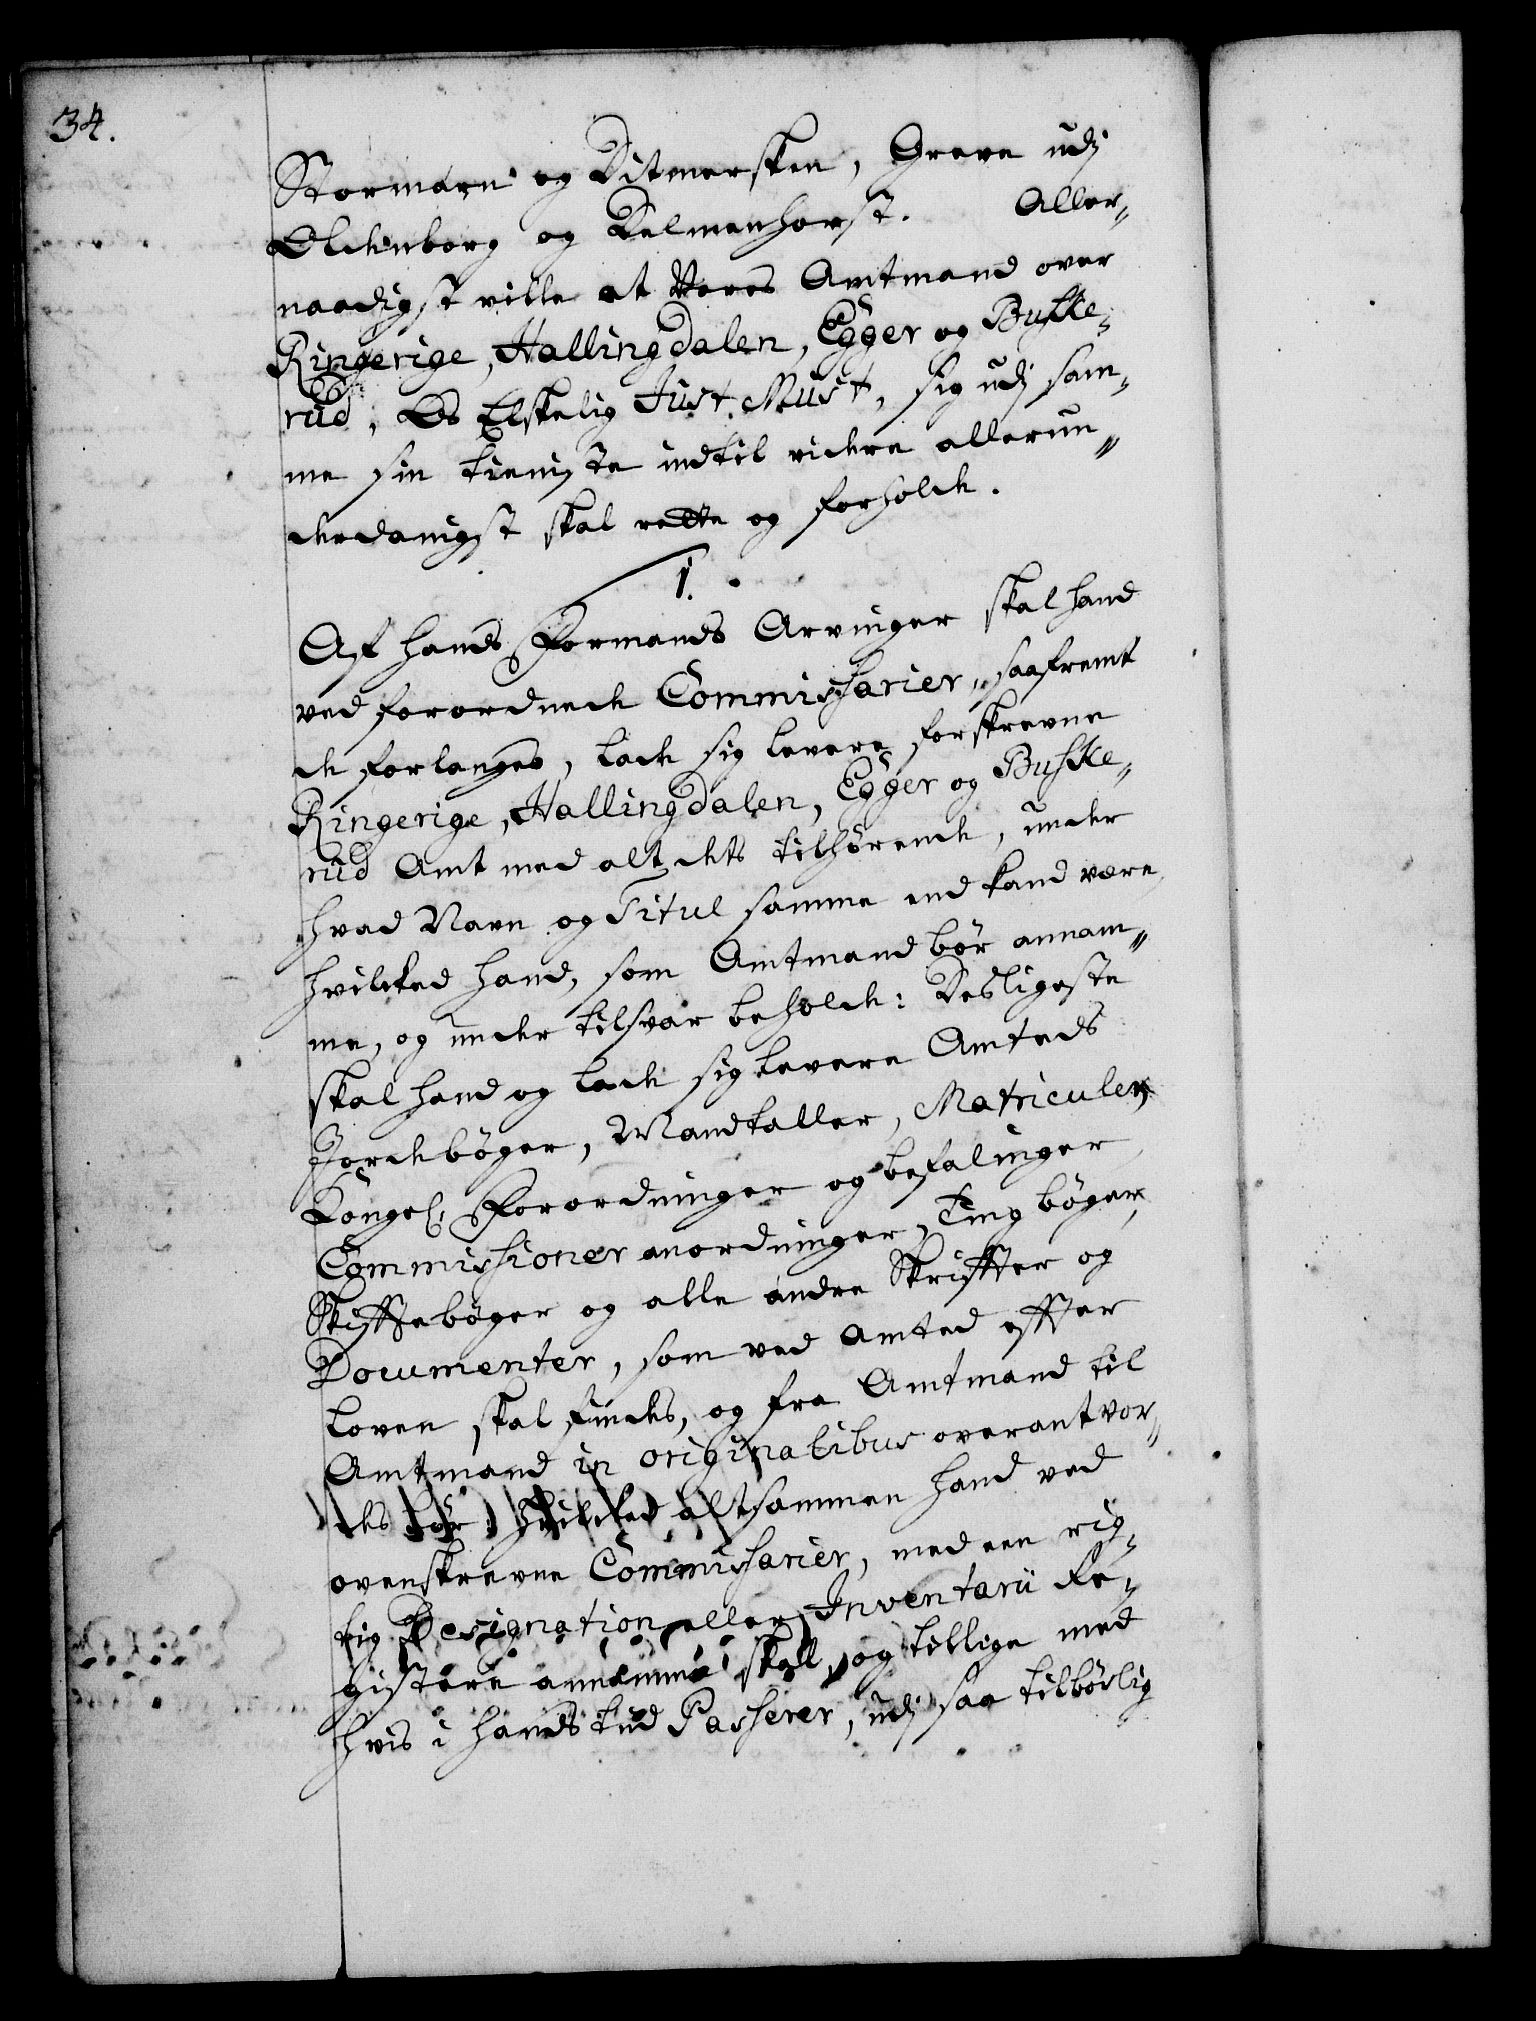 34.
Stormarn og Ditmersken, Greve udj
Oldenborg og Delmenhorst. Aller„
naadigst ville at Vores Amtmand over
Ringerige, Hallingdalen, Egger og Buske„
rud, Os Elskelig Just Must, sig udj sam„
me sin tieniste indtil videre allerun„
derdanigst skal rette og forholde.
1.
Af hands Formands Arvinger skal hand
ved forordnede Commissarier, saafremt
de forlanges, lade sig levere forskrevne
Ringerige, Hallingdalen, Egger og Buske„
rud Amt med alt dets tilhørende, under
hvad Navn og Titul samme end kand være,
hvilcked hand, som Amtmand bør annam„
me, og under tilsvar beholde: Desligeste
skal hand og lade sig levere Amteds
Jordebøger, Mandtaller, Matriculer,
Kongel. Forordninger og befalinger,
Commissioner anordninger, Ting bøger,
Skifftebøger og alle andre Skriffter og
Documenter, som ved Amted effter
loven skal findes, og fra Amtmand til
Amtmand in originalibus overantvor„
des bør: Hvilcked altsammen hand ved
ovenskrevne Commissarier, med een rig„
tig Designation eller Inventarii Re„
gistere annamme skal, og tillige med
hvis i hands tiid Passerer, udj saa tilbørlig